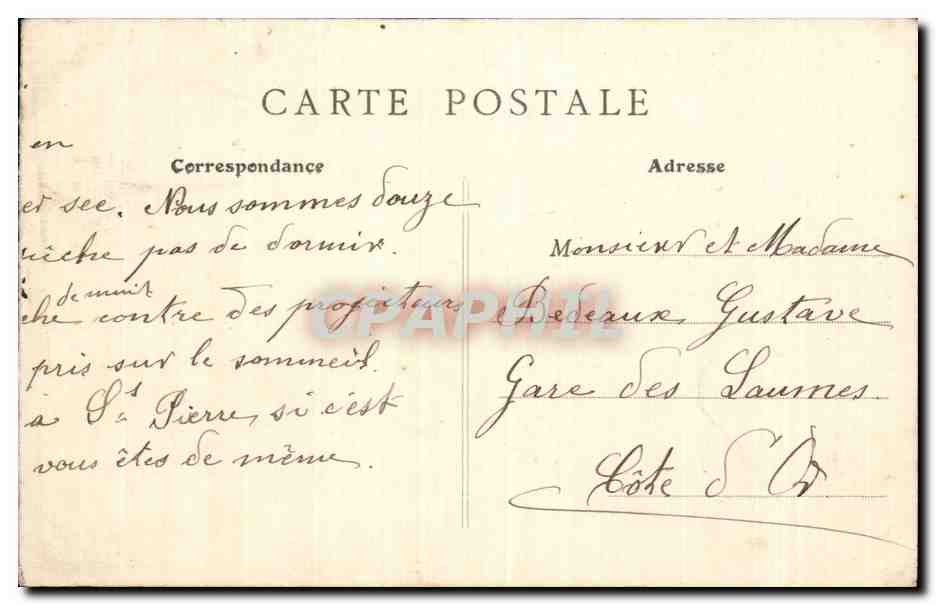 CARTE POSTALE
en
Correspondance
er sec. Nous sommes douze
pêche pas de dormir.
de nuit
che contre des projecteurs
pris sur le sommeil.
à St Pierre, si c'est
vous êtes de même.
Adresse
Monsieur et Madame
Bedeaux Gustave
Gare des Laumes
Côte d'Or
CPAPHIL